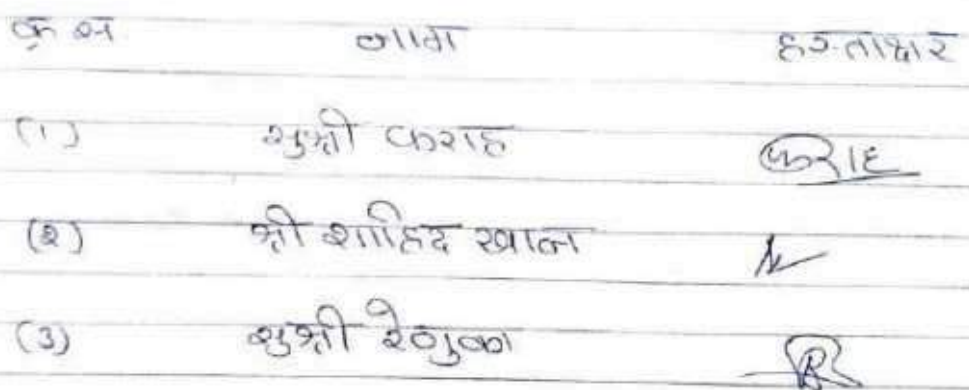 क्र स नाम हस्ताक्षर
(1) सुश्री फराह फराह
(2) श्री शाहिद खान
(3) सुश्री रेणुका